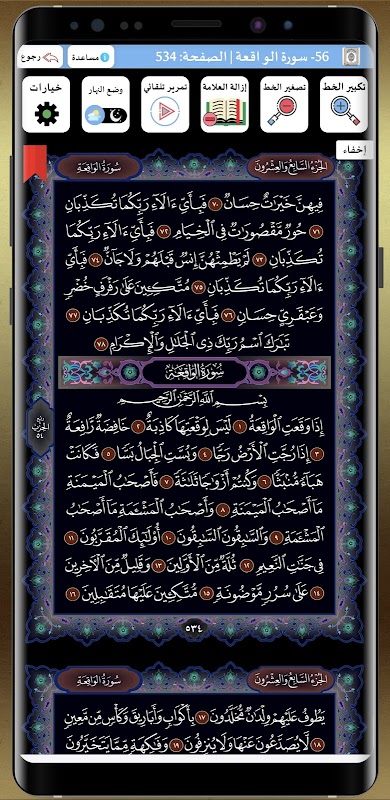 56- سورة الواقعة | الصفحة: 534
مساعدة
رجوع
تكبير الخط
تصغير الخط
إزالة العلامة
تمرير تلقائي
وضع النهار
خيارات
إخفاء
الجُزْءُ السَّابِعُ وَالعِشْرُونَ
سُورَةُ الوَاقِعَةِ
فِيهِنَّ خَيْرَٰتٌ حِسَانٌ ٧٠ فَبِأَيِّ ءَالَآءِ رَبِّكُمَا تُكَذِّبَانِ
٧١ حُورٌ مَّقْصُورَٰتٌ فِي ٱلْخِيَامِ ٧٢ فَبِأَيِّ ءَالَآءِ رَبِّكُمَا
تُكَذِّبَانِ ٧٣ لَمْ يَطْمِثْهُنَّ إِنسٌ قَبْلَهُمْ وَلَا جَآنٌّ ٧٤ فَبِأَيِّ
ءَالَآءِ رَبِّكُمَا تُكَذِّبَانِ ٧٥ مُتَّكِـِٔينَ عَلَىٰ رَفْرَفٍ خُضْرٍ
وَعَبْقَرِيٍّ حِسَانٍ ٧٦ فَبِأَيِّ ءَالَآءِ رَبِّكُمَا تُكَذِّبَانِ ٧٧
تَبَٰرَكَ ٱسْمُ رَبِّكَ ذِي ٱلْجَلَٰلِ وَٱلْإِكْرَامِ ٧٨
سُورَةُ الوَاقِعَةِ
بِسْمِ ٱللَّهِ ٱلرَّحْمَٰنِ ٱلرَّحِيمِ
إِذَا وَقَعَتِ ٱلْوَاقِعَةُ ١ لَيْسَ لِوَقْعَتِهَا كَاذِبَةٌ ٢ خَافِضَةٌ رَّافِعَةٌ
٣ إِذَا رُجَّتِ ٱلْأَرْضُ رَجًّا ٤ وَبُسَّتِ ٱلْجِبَالُ بَسًّا ٥ فَكَانَتْ
هَبَآءً مُّنۢبَثًّا ٦ وَكُنتُمْ أَزْوَٰجًا ثَلَٰثَةً ٧ فَأَصْحَٰبُ ٱلْمَيْمَنَةِ
مَآ أَصْحَٰبُ ٱلْمَيْمَنَةِ ٨ وَأَصْحَٰبُ ٱلْمَشْـَٔمَةِ مَآ أَصْحَٰبُ
ٱلْمَشْـَٔمَةِ ٩ وَٱلسَّٰبِقُونَ ٱلسَّٰبِقُونَ ١٠ أُو۟لَٰٓئِكَ ٱلْمُقَرَّبُونَ ١١
فِي جَنَّٰتِ ٱلنَّعِيمِ ١٢ ثُلَّةٌ مِّنَ ٱلْأَوَّلِينَ ١٣ وَقَلِيلٌ مِّنَ ٱلْـَٔاخِرِينَ
١٤ عَلَىٰ سُرُرٍ مَّوْضُونَةٍ ١٥ مُّتَّكِـِٔينَ عَلَيْهَا مُتَقَٰبِلِينَ ١٦
الحزب
٥٤
٥٣٤
الجُزْءُ السَّابِعُ وَالعِشْرُونَ
سُورَةُ الوَاقِعَةِ
يَطُوفُ عَلَيْهِمْ وِلْدَٰنٌ مُّخَلَّدُونَ ١٧ بِأَكْوَابٍ وَأَبَارِيقَ وَكَأْسٍ مِّن مَّعِينٍ
١٨ لَّا يُصَدَّعُونَ عَنْهَا وَلَا يُنزِفُونَ ١٩ وَفَٰكِهَةٍ مِّمَّا يَتَخَيَّرُونَ